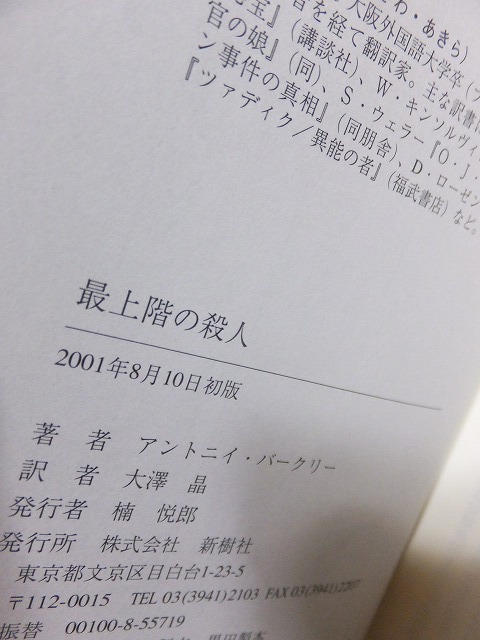 わ・あきら)
大阪外国語大学卒
を経て翻訳家。主な訳書
宝』
官の娘』(講談社)、W・キンソルヴィ
ン事件の真相』(同)、S・ウェラー『O・J・
(同朋舎)、D・ローゼン
『ツァディク/異能の者』(福武書店)など。
最上階の殺人
2001年8月10日初版
著 者 アントニイ・バークリー
訳 者 大澤 晶
発行者 楠 悦郎
発行所 株式会社 新樹社
東京都文京区目白台1-23-5
〒112-0015 TEL 03(3941)2103 FAX 03(3941)2207
振替 00100-8-55719